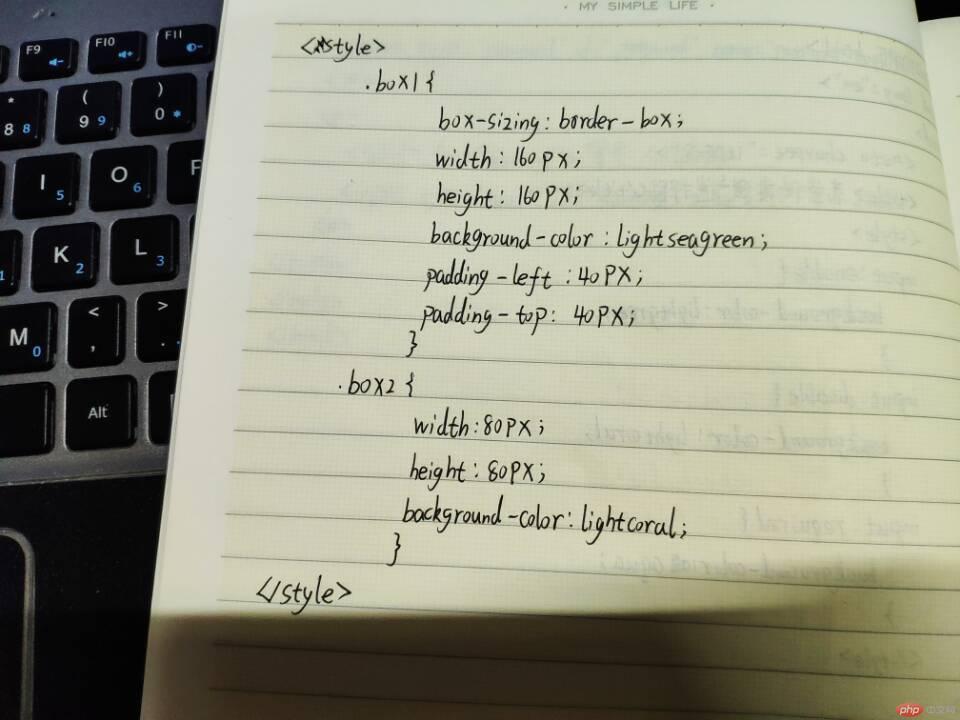 · MY SIMPLE LIFE ·
<style>
.box1 {
box-sizing: border-box;
width: 160px;
height: 160px;
background-color: lightseagreen;
padding-left: 40px;
padding-top: 40px;
}
.box2 {
width: 80px;
height: 80px;
background-color: lightcoral;
}
</style>
F9
F10
F11
*
8 8
(
9 9
)
0 *
I 5
O 6
P
K 2
L 3
1
M 0
<
,
>
.
Alt
php 中文网